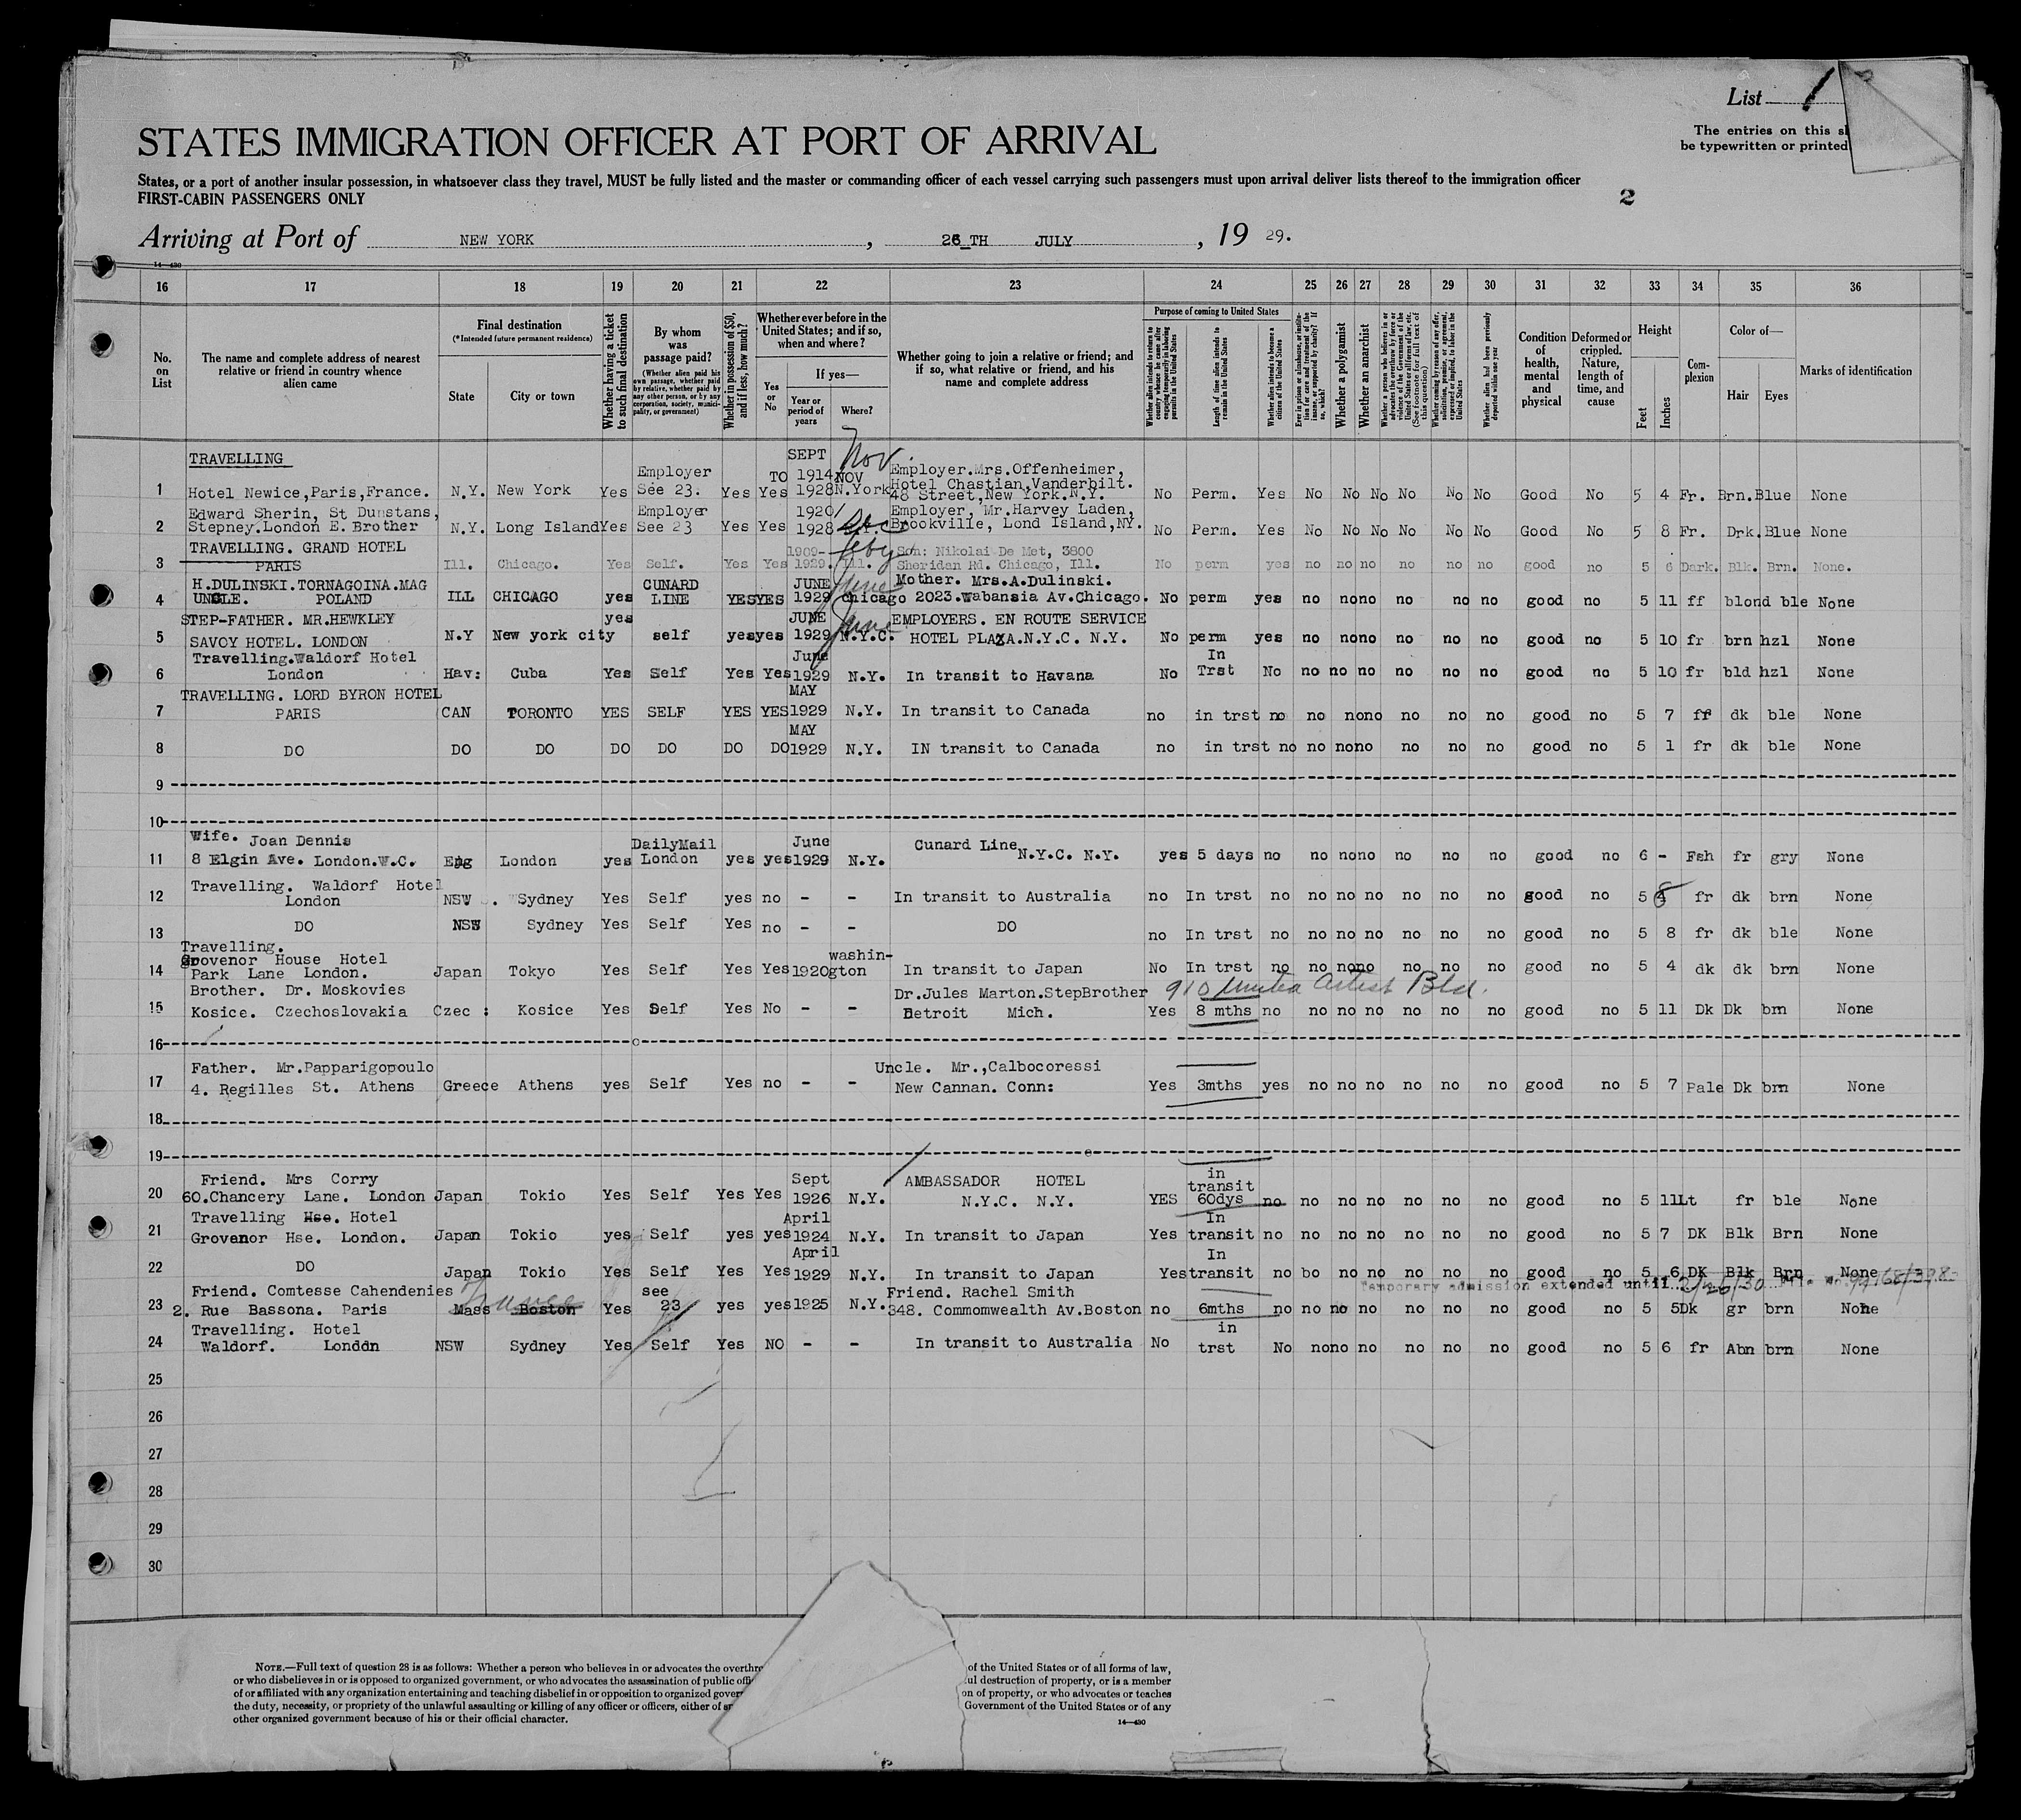 List 1
STATES IMMIGRATION OFFICER AT PORT OF ARRIVAL
The entries on this
be typewritten or printed
States, or a port of another insular possession, in whatsoever class they travel, MUST be fully listed and the master or commanding officer of each vessel carrying such passengers must upon arrival deliver lists thereof to the immigration officer
FIRST-CABIN PASSENGERS ONLY
2
Arriving at Port of NEW YORK, 26_TH JULY, 19 29.
14—430
16 17 18 19 20 21 22 23 24 25 26 27 28 29 30 31 32 33 34 35 36
No. on List
The name and complete address of nearest relative or friend in country whence alien came
Final destination (*Intended future permanent residence)
State
City or town
Whether having a ticket to such final destination
By whom was passage paid? (Whether alien paid his own passage, whether paid by any other person, or by any corporation, society, municipality, or government)
Whether in possession of $50, and if less, how much?
Whether ever before in the United States; and if so, when and where?
Yes or No
If yes—
Year or period of years
Where?
Whether going to join a relative or friend; and if so, what relative or friend, and his name and complete address
Purpose of coming to United States
Whether alien intends to return to country whence he came after engaging temporarily in laboring pursuits in the United States
Length of time alien intends to remain in the United States
Whether alien intends to become a citizen of the United States
Ever in prison or almshouse, or institution for care and treatment of the insane, or supported by charity? If so, which?
Whether a polygamist
Whether an anarchist
Whether a person who believes in or advocates the overthrow by force or violence of the Government of the United States or all forms of law, etc. (See footnote for full text of this question)
Whether coming by reason of any offer, solicitation, promise, or agreement, expressed or implied, to labor in the United States
Whether alien had been previously deported within one year
Condition of health, mental and physical
Deformed or crippled. Nature, length of time, and cause
Height
Feet
Inches
Complexion
Color of—
Hair
Eyes
Marks of identification
1 TRAVELLING Hotel Newice,Paris,France. N.Y. New York Yes Employer See 23. Yes Yes SEPT 1914 TO NOV 1928 Nov N.York Employer.Mrs.Offenheimer, Hotel Chastian,Vanderbilt. 48 Street,New York.N.Y. No Perm. Yes No No No No No No Good No 5 4 Fr. Brn. Blue None
2 Edward Sherin, St Dunstans, Stepney.London E. Brother N.Y. Long Island Yes Employer See 23 Yes Yes 1920/ 1928 Dec Employer, Mr.Harvey Laden, Brookville, Lond Island,NY. No Perm. Yes No No No No No No Good No 5 8 Fr. Drk. Blue None
3 TRAVELLING. GRAND HOTEL PARIS Ill. Chicago. Yes Self. Yes Yes 1909- 1929. Feby Ill. Son: Nikolai De Met, 3800 Sheridan Rd. Chicago, Ill. No perm yes no no no no no no good no 5 6 Dark. Blk. Brn. None.
4 H.DULINSKI.TORNAGOINA.MAG UNCLE. POLAND ILL CHICAGO yes CUNARD LINE YES YES JUNE 1929 June chicago Mother. Mrs.A.Dulinski. 2023.Wabansia Av.Chicago. No perm yes no no no no no no good no 5 11 ff blond ble None
5 STEP-FATHER. MR.HEWKLEY SAVOY HOTEL. LONDON N.Y New york city yes self yes yes JUNE 1929 June N.Y.C. EMPLOYERS. EN ROUTE SERVICE HOTEL PLAZA.N.Y.C. N.Y. No perm yes no no no no no no good no 5 10 fr brn hzl None
6 Travelling.Waldorf Hotel London Hav: Cuba Yes Self Yes Yes June 1929 N.Y. In transit to Havana No In Trst No no no no no no no good no 5 10 fr bld hzl None
7 TRAVELLING. LORD BYRON HOTEL PARIS CAN TORONTO YES SELF YES YES MAY 1929 N.Y. In transit to Canada no in trst no no no no no no no good no 5 7 ff dk ble None
8 DO DO DO DO DO DO DO MAY 1929 N.Y. IN transit to Canada no in trst no no no no no no no good no 5 1 fr dk ble None
9
10
11 Wife. Joan Dennis 8 Elgin Ave. London.W.C. Eng London yes DailyMail London yes yes June 1929 N.Y. Cunard Line N.Y.C. N.Y. yes 5 days no no no no no no no good no 6 - Fsh fr gry None
12 Travelling. Waldorf Hotel London NSW . Sydney Yes Self yes no - - In transit to Australia no In trst no no no no no no no good no 5 8 fr dk brn None
13 DO NSW Sydney Yes Self Yes no - - DO no In trst no no no no no no no good no 5 8 fr dk ble None
14 Travelling. Grovenor House Hotel Park Lane London. Japan Tokyo Yes Self Yes Yes 1920 washington In transit to Japan No In trst no no no no no no no good no 5 4 dk dk brn None
910 United Artist Bld.
15 Brother. Dr. Moskovies Kosice. Czechoslovakia Czec : Kosice Yes Self Yes No - - Dr.Jules Marton.StepBrother Detroit Mich. Yes 8 mths no no no no no no no good no 5 11 Dk Dk brn None
16
17 Father. Mr.Papparigopoulo 4. Regilles St. Athens Greece Athens yes Self Yes no - - Uncle. Mr.,Calbocoressi New Cannan. Conn: Yes 3mths yes no no no no no no good no 5 7 Pale Dk brn None
18
19
20 Friend. Mrs Corry 60.Chancery Lane. London Japan Tokio Yes Self Yes Yes Sept 1926 N.Y. AMBASSADOR HOTEL N.Y.C. N.Y. YES in transit 60dys no no no no no no no good no 5 11 Lt fr ble None
21 Travelling Hse. Hotel Grovenor Hse. London. Japan Tokio yes Self yes yes April 1924 N.Y. In transit to Japan Yes In transit no no no no no no no good no 5 7 DK Blk Brn None
22 DO Japan Tokio Yes Self Yes Yes April 1929 N.Y. In transit to Japan Yes In transit no bo no no no no no good no 5 6 DK Blk Brn None
Temporary admission extended until 2/26/30
23 Friend. Comtesse Cahendenies 2. Rue Bassona. Paris Mass Boston France Yes see 23 yes yes 1925 N.Y. Friend. Rachel Smith 348. Commomwealth Av.Boston no 6mths no no no no no no no good no 5 5 Dk gr brn None
24 Travelling. Hotel Waldorf. London NSW Sydney Yes Self Yes NO - - In transit to Australia No in trst No no no no no no no good no 5 6 fr Abn brn None
25
26
27
28
29
30
NOTE.—Full text of question 28 is as follows: Whether a person who believes in or advocates the of the United States or of all forms of law,
or who disbelieves in or is opposed to organized government, or who advocates the assassination of public destruction of property, or is a member
of or affiliated with any organization entertaining and teaching disbelief in or opposition to organized of property, or who advocates or teaches
the duty, necessity, or propriety of the unlawful assaulting or killing of any officer or officers, either of Government of the United States or of any
other organized government because of his or their official character.
14—430